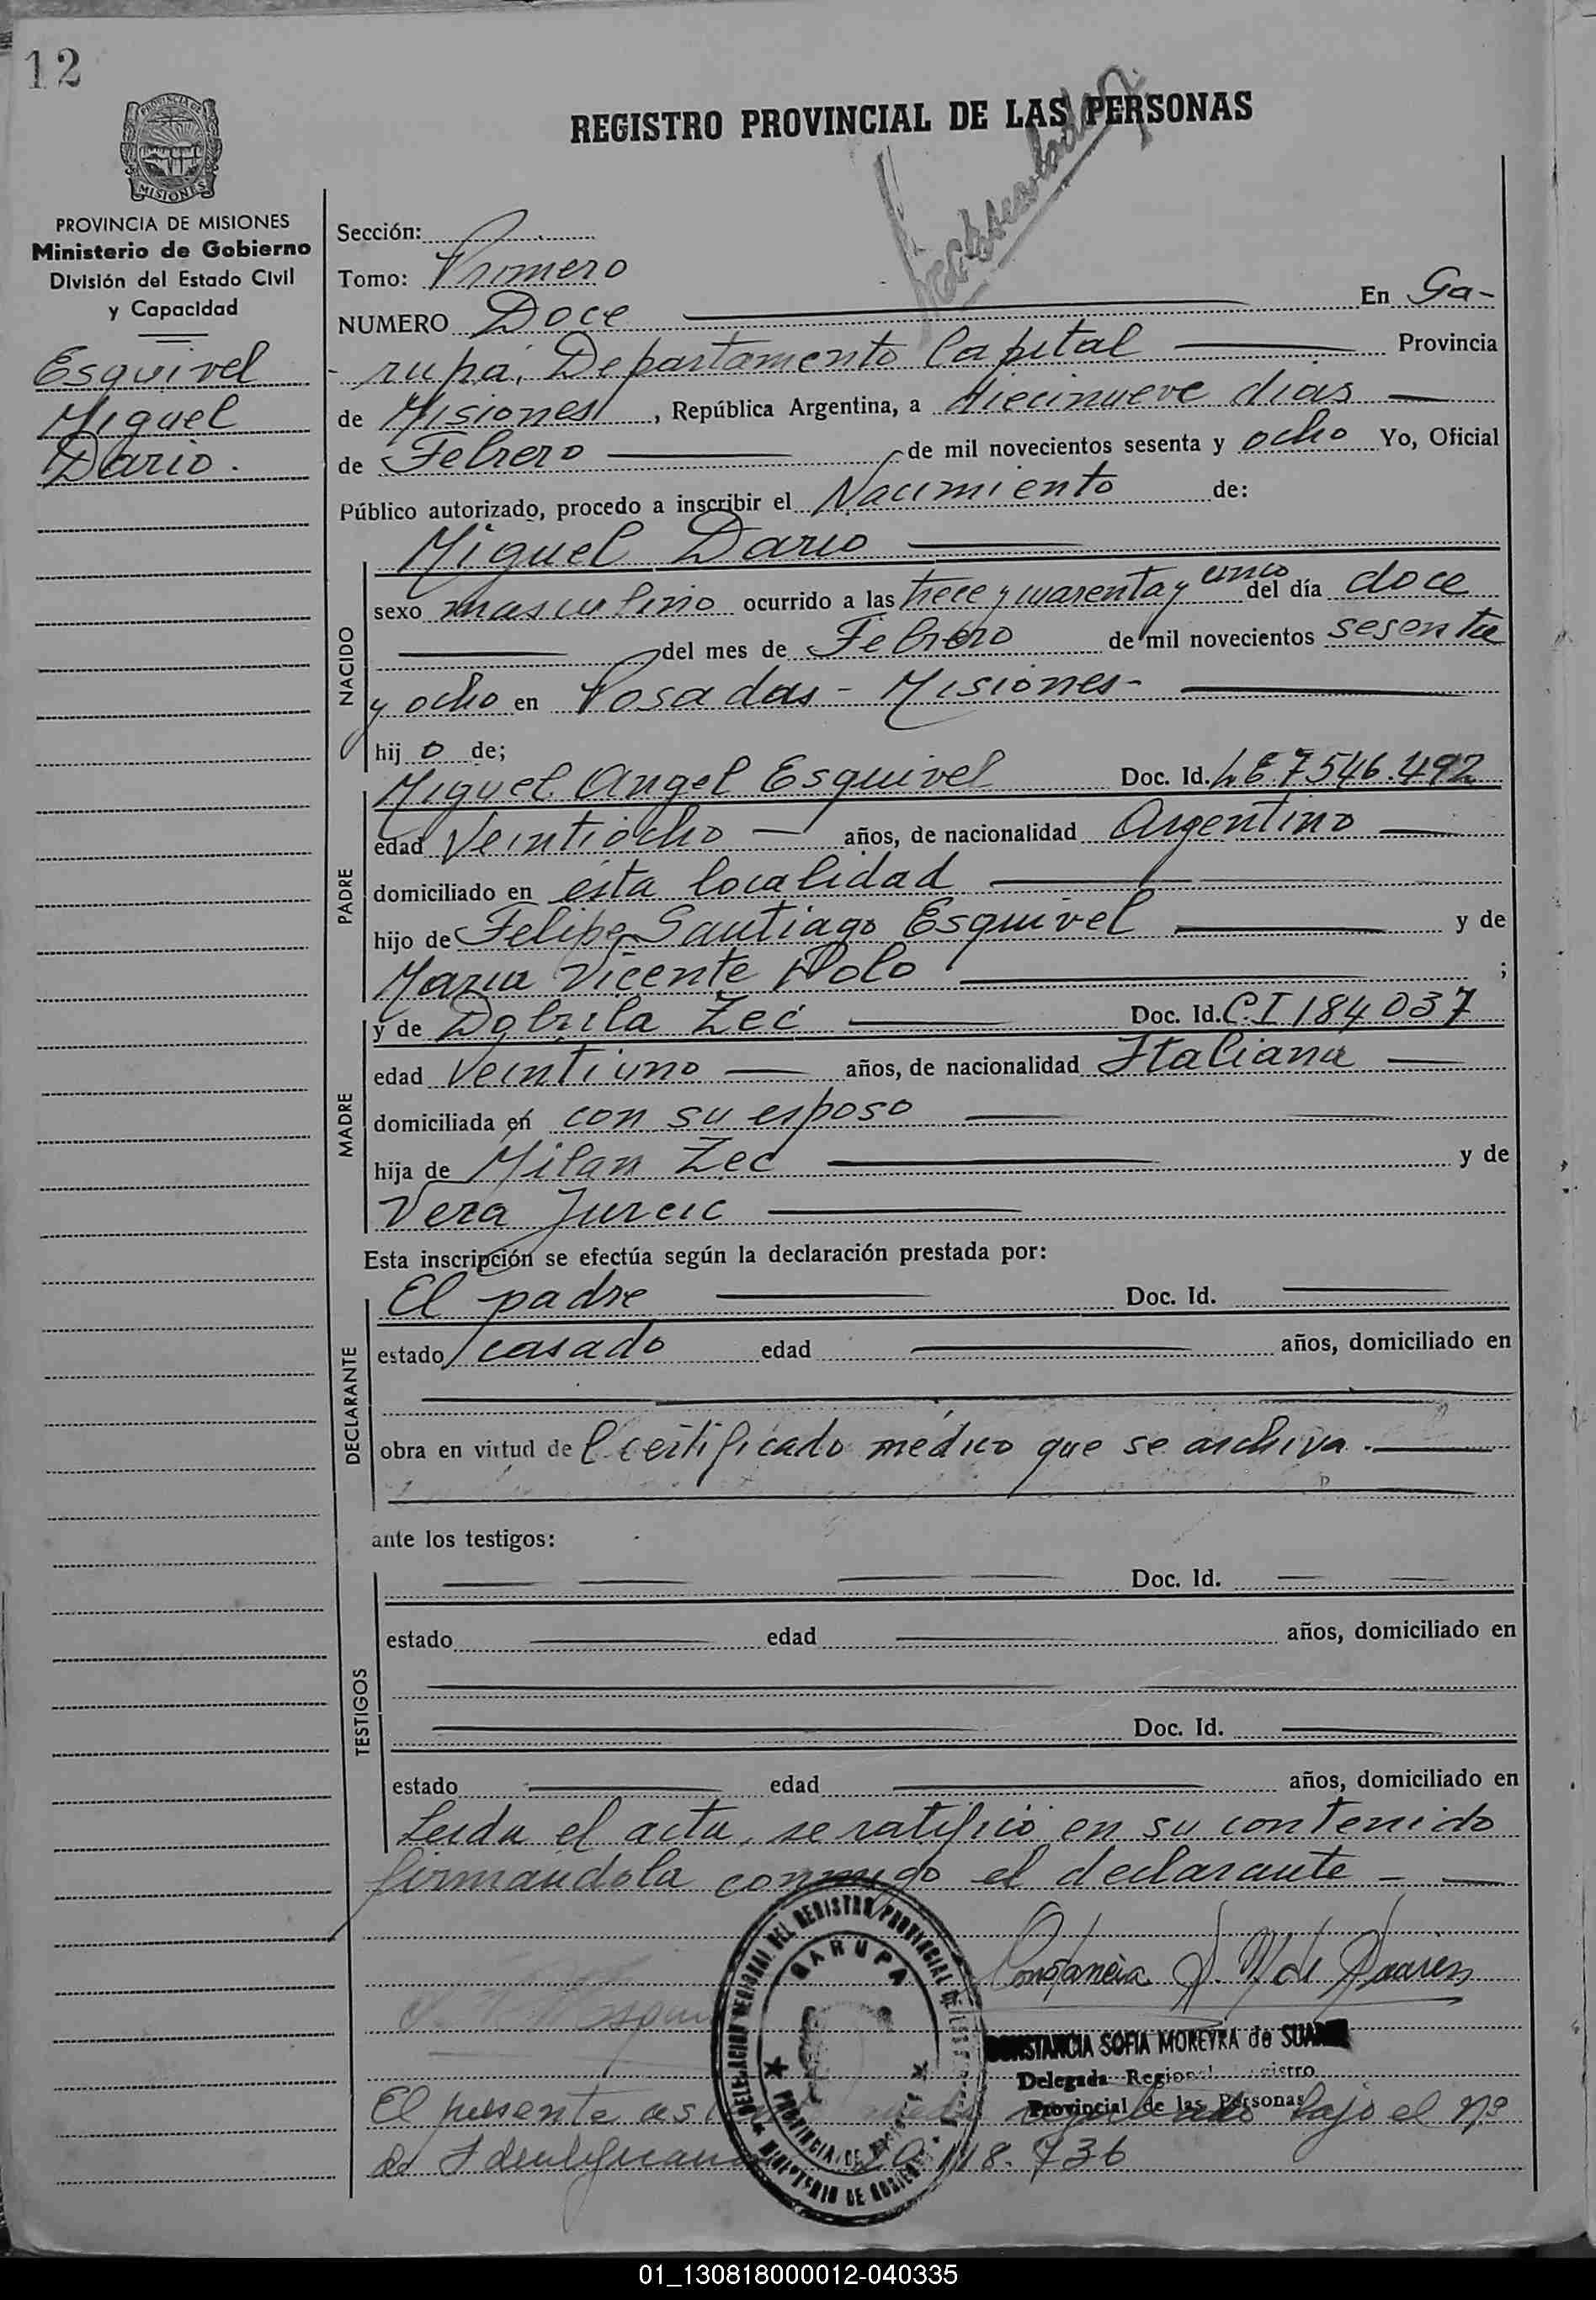 12
REGISTRO PROVINCIAL DE LAS PERSONAS
MISIONES
PROVINCIA DE MISIONES
Ministerio de Gobierno
División del Estado Civil
y Capacidad
Esquivel
Miguel
Dario.
Sección:
Tomo: Primero
NUMERO Doce En Ga-
rupá, Departamento Capital Provincia
de Misiones, República Argentina, a diecinueve dias
de Febrero de mil novecientos sesenta y ocho Yo, Oficial
Público autorizado, procedo a inscribir el Nacimiento de:
Miguel Dario
NACIDO
sexo masculino ocurrido a las trece y cuarenta y cinco del día doce
del mes de Febrero de mil novecientos sesenta
y ocho en Posadas - Misiones-
hij o de;
PADRE
Miguel Angel Esquivel Doc. Id. LE 7546.492
edad Veintiocho años, de nacionalidad Argentino
domiciliado en esta localidad
hijo de Felipe Santiago Esquivel y de
Maria Vicente Polo ;
MADRE
y de Dobrila Zec Doc. Id. C.I 184.037
edad Veintiuno años, de nacionalidad Italiana
domiciliada en con su esposo
hija de Milan Zec y de
Vera Jurcic
Esta inscripción se efectúa según la declaración prestada por:
DECLARANTE
El padre Doc. Id.
estado casado edad años, domiciliado en
obra en virtud de l certificado médico que se archiva.
ante los testigos:
TESTIGOS
Doc. Id.
estado edad años, domiciliado en
Doc. Id.
estado edad años, domiciliado en
Leida el acta, se ratificó en su contenido
firmandola conmigo el declarante -
DELEGACION REGIONAL DEL REGISTRO PROVINCIAL DE LAS
GARUPA
PROVINCIA DE
MINISTERIO DE GOBIERNO
Constancia S. M. de Suarez
CONSTANCIA SOFIA MOREYRA de SUAREZ
Delegada Regional Registro
Provincial de las Personas
El presente bajo el Nº
de 118.736
01_130818000012-040335